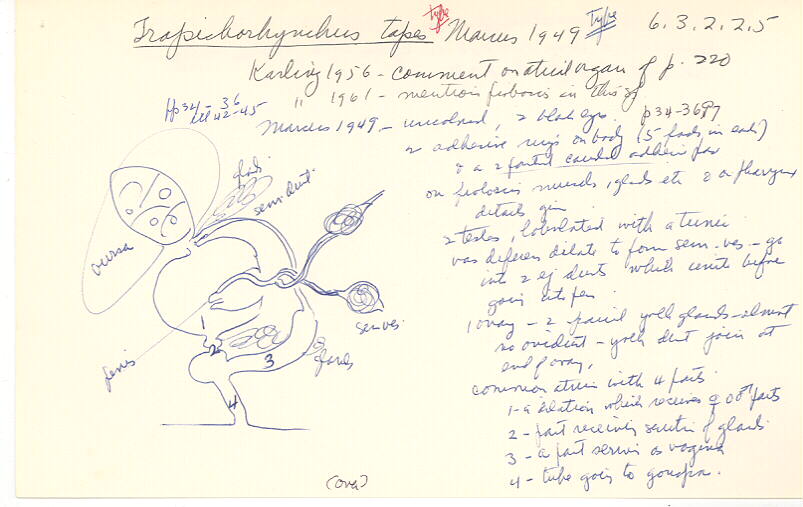 Trapichorhynchus tapes type Marcus 1949 Type 6.3.2.2.5
Karling 1956 - comment on atrial organ of p. 220
" 1961 - mention proboscis in this sp
pp 34-36
Marcus 1949 - uncolored, 2 black eyes. p 34-36
2 adhesive rings on body (5 in each)
& a 2 caudal adhesive
on proboscis muscles, glands etc & on pharynx
details given
2 testes, lobulated with a tunic
vas deferens dilate to form sem. ves - go
into 2 ej ducts which unite before
going into pen
1 ovary - 2 paired yolk glands - almost
no oviduct - yolk duct join at
end of ovary,
common atrium with 4 parts
1 - a dilation which receives ♀ ♂ parts
2 - part receiving secretion of glands
3 - a part serving as vagina
4 - tube going to gonopore.
glands
sem duct
bursa
sem ves
penis
glands
2
3
4
(over)